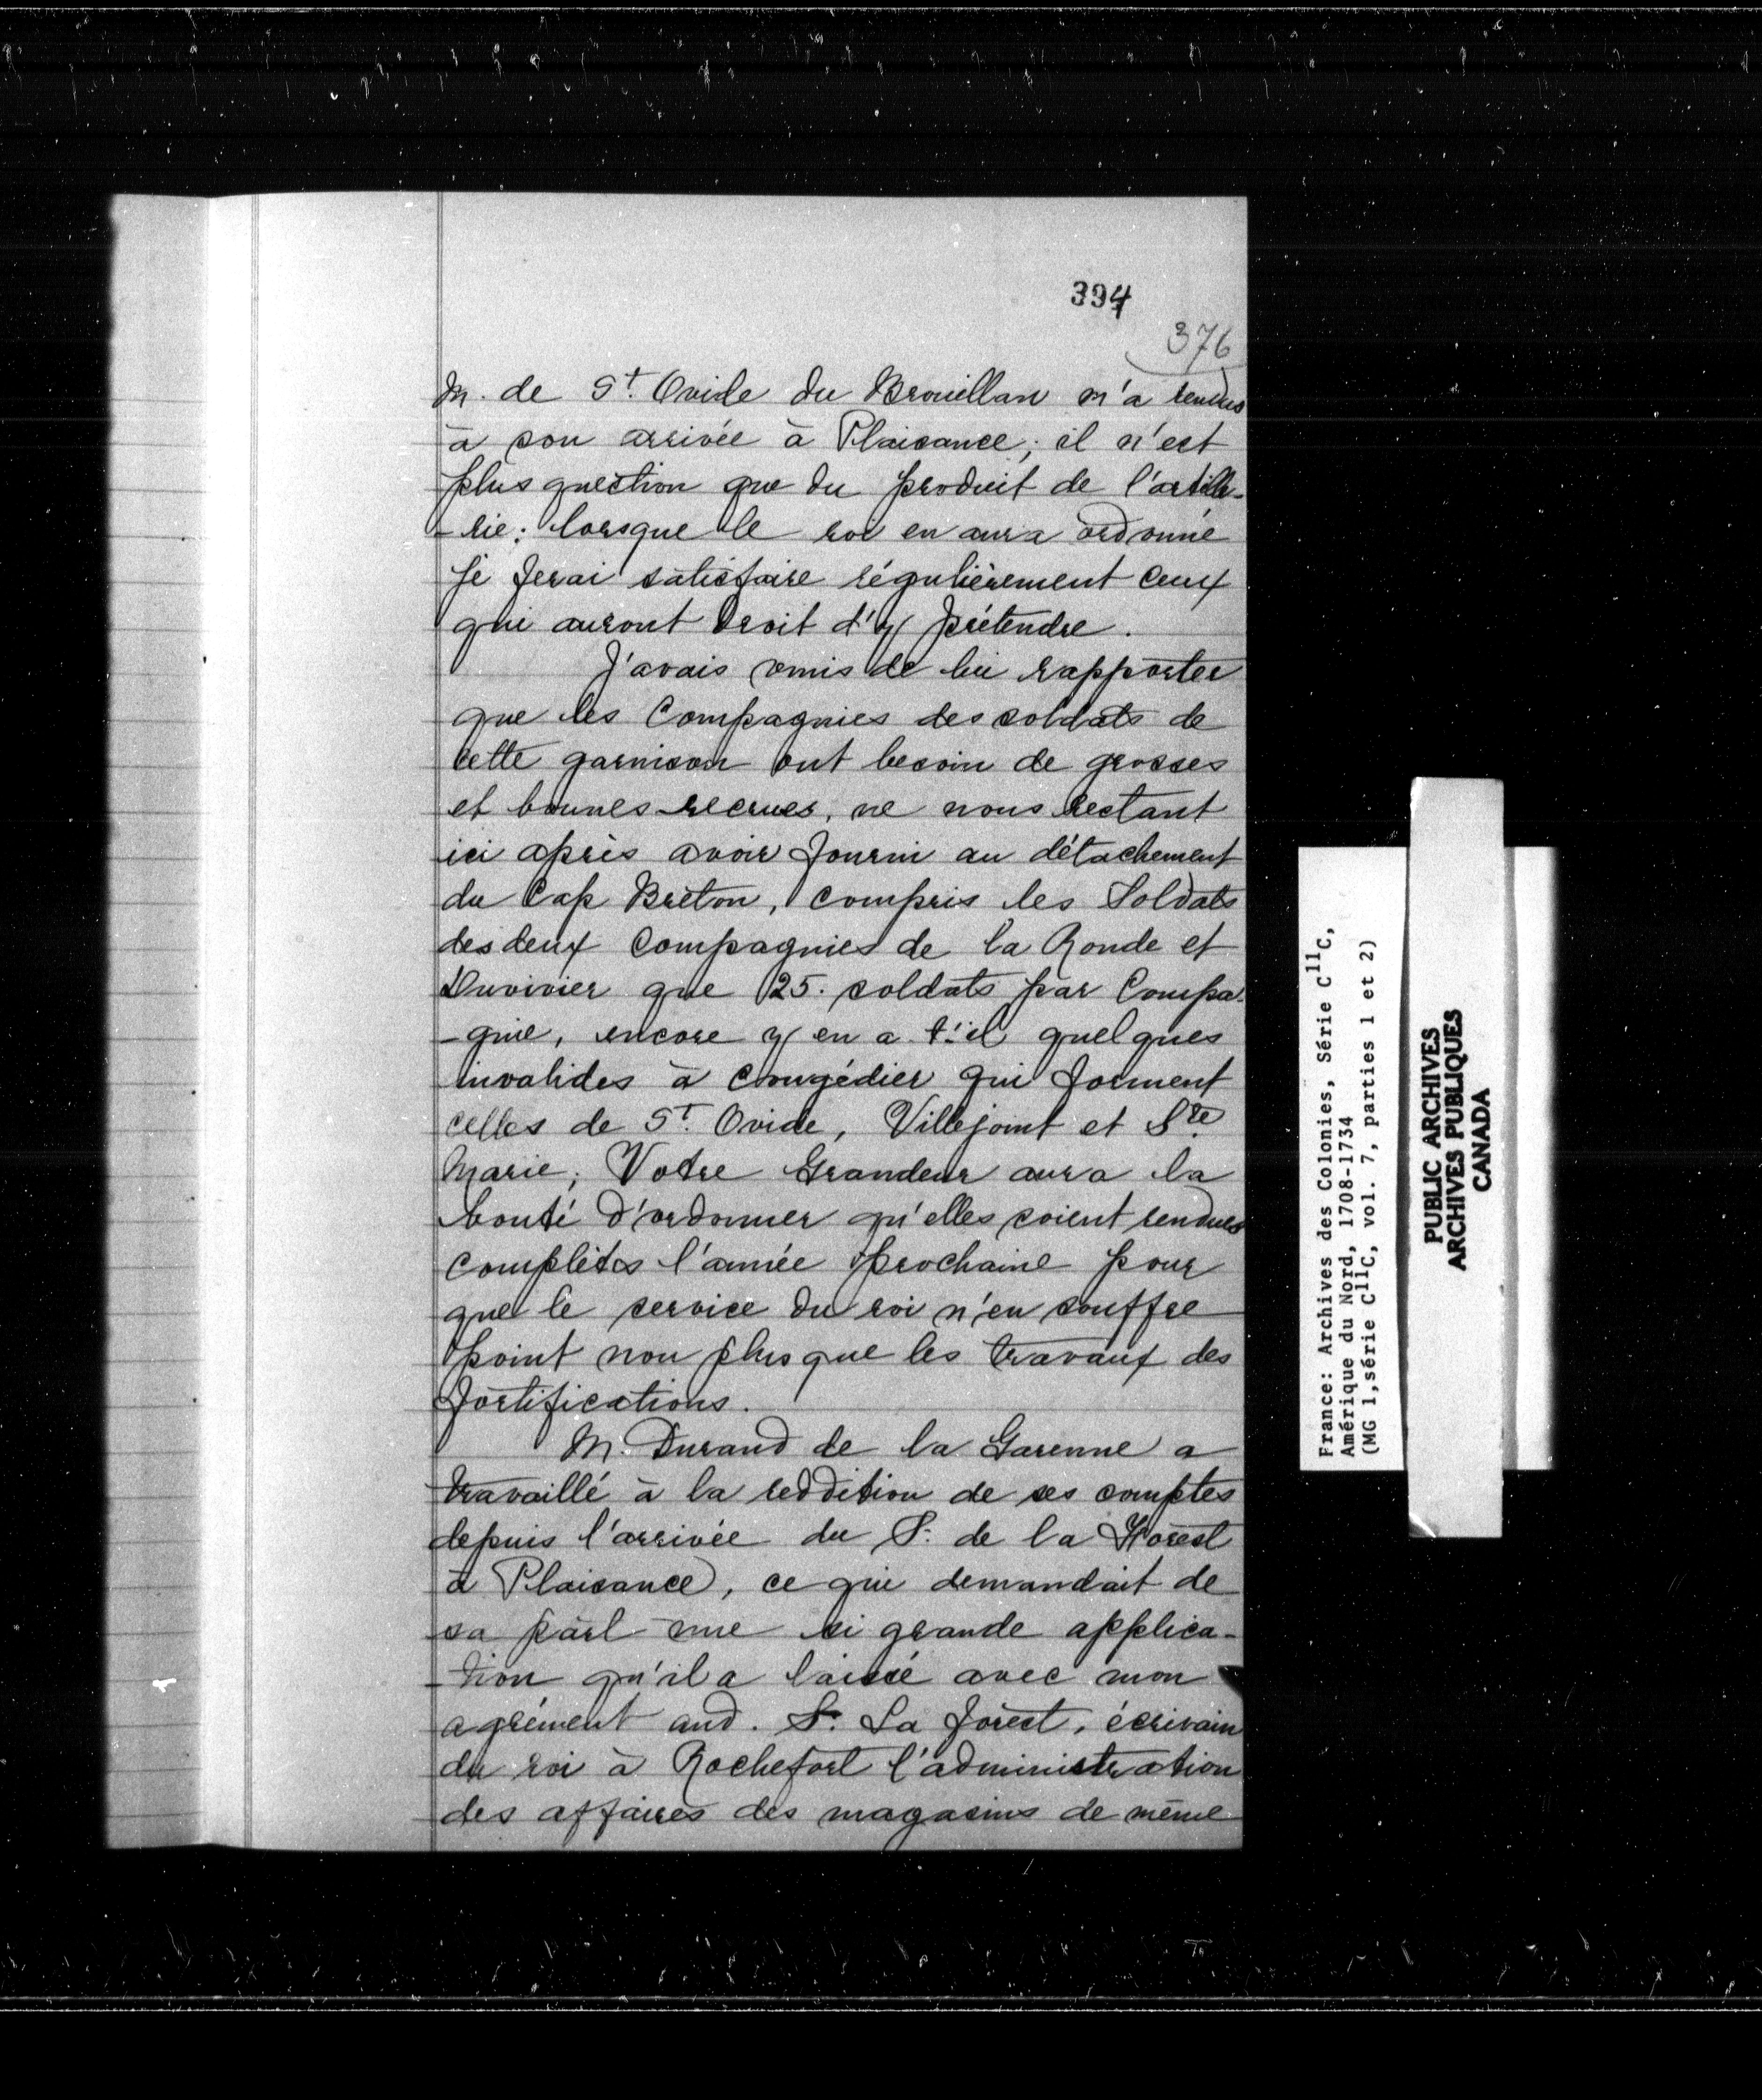 394
376
M. de St. Ovide du Brouillan m'a rendus
à son arrivée à Plaisance; il n'est
plus question que du produit de l'artille-
-rie; lorsque le roi en aura ordonné
je ferai satisfaire régulièrement ceux
qui auront droit d'y prétendre.
J'avais omis de lui rapporter
que les Compagnies des soldats de
cette garnison ont besoin de grosses
et bonnes recrues, ne nous restant
ici après avoir fourni au détachement
du Cap Breton, compris les Soldats
des deux compagnies de la Ronde et
Duvivier que 25. soldats par Compa-
-gnie, encore y en a-t-il quelques
invalides à congédier qui forment
celles de St. Ovide, Villejoint et Ste
Marie; Votre Grandeur aura la
bonté d'ordonner qu'elles soient rendues
complètes l'année prochaine pour
que le service du roi n'en souffre
point non plus que les travaux des
fortifications.
M. Durand de la Garenne a
travaillé à la reddition de ses comptes
depuis l'arrivée du S. de la Forest
à Plaisance, ce qui demandait de
sa part une si grande applica-
-tion qu'il a laissé avec mon
agrément aud. S. La forest, écrivain
du roi à Rochefort l'administration
des affaires des magasins de même
France: Archives des Colonies, Série C11C,
Amérique du Nord, 1708-1734
(MG 1,série C11C, vol. 7, parties 1 et 2)
PUBLIC ARCHIVES
ARCHIVES PUBLIQUES
CANADA